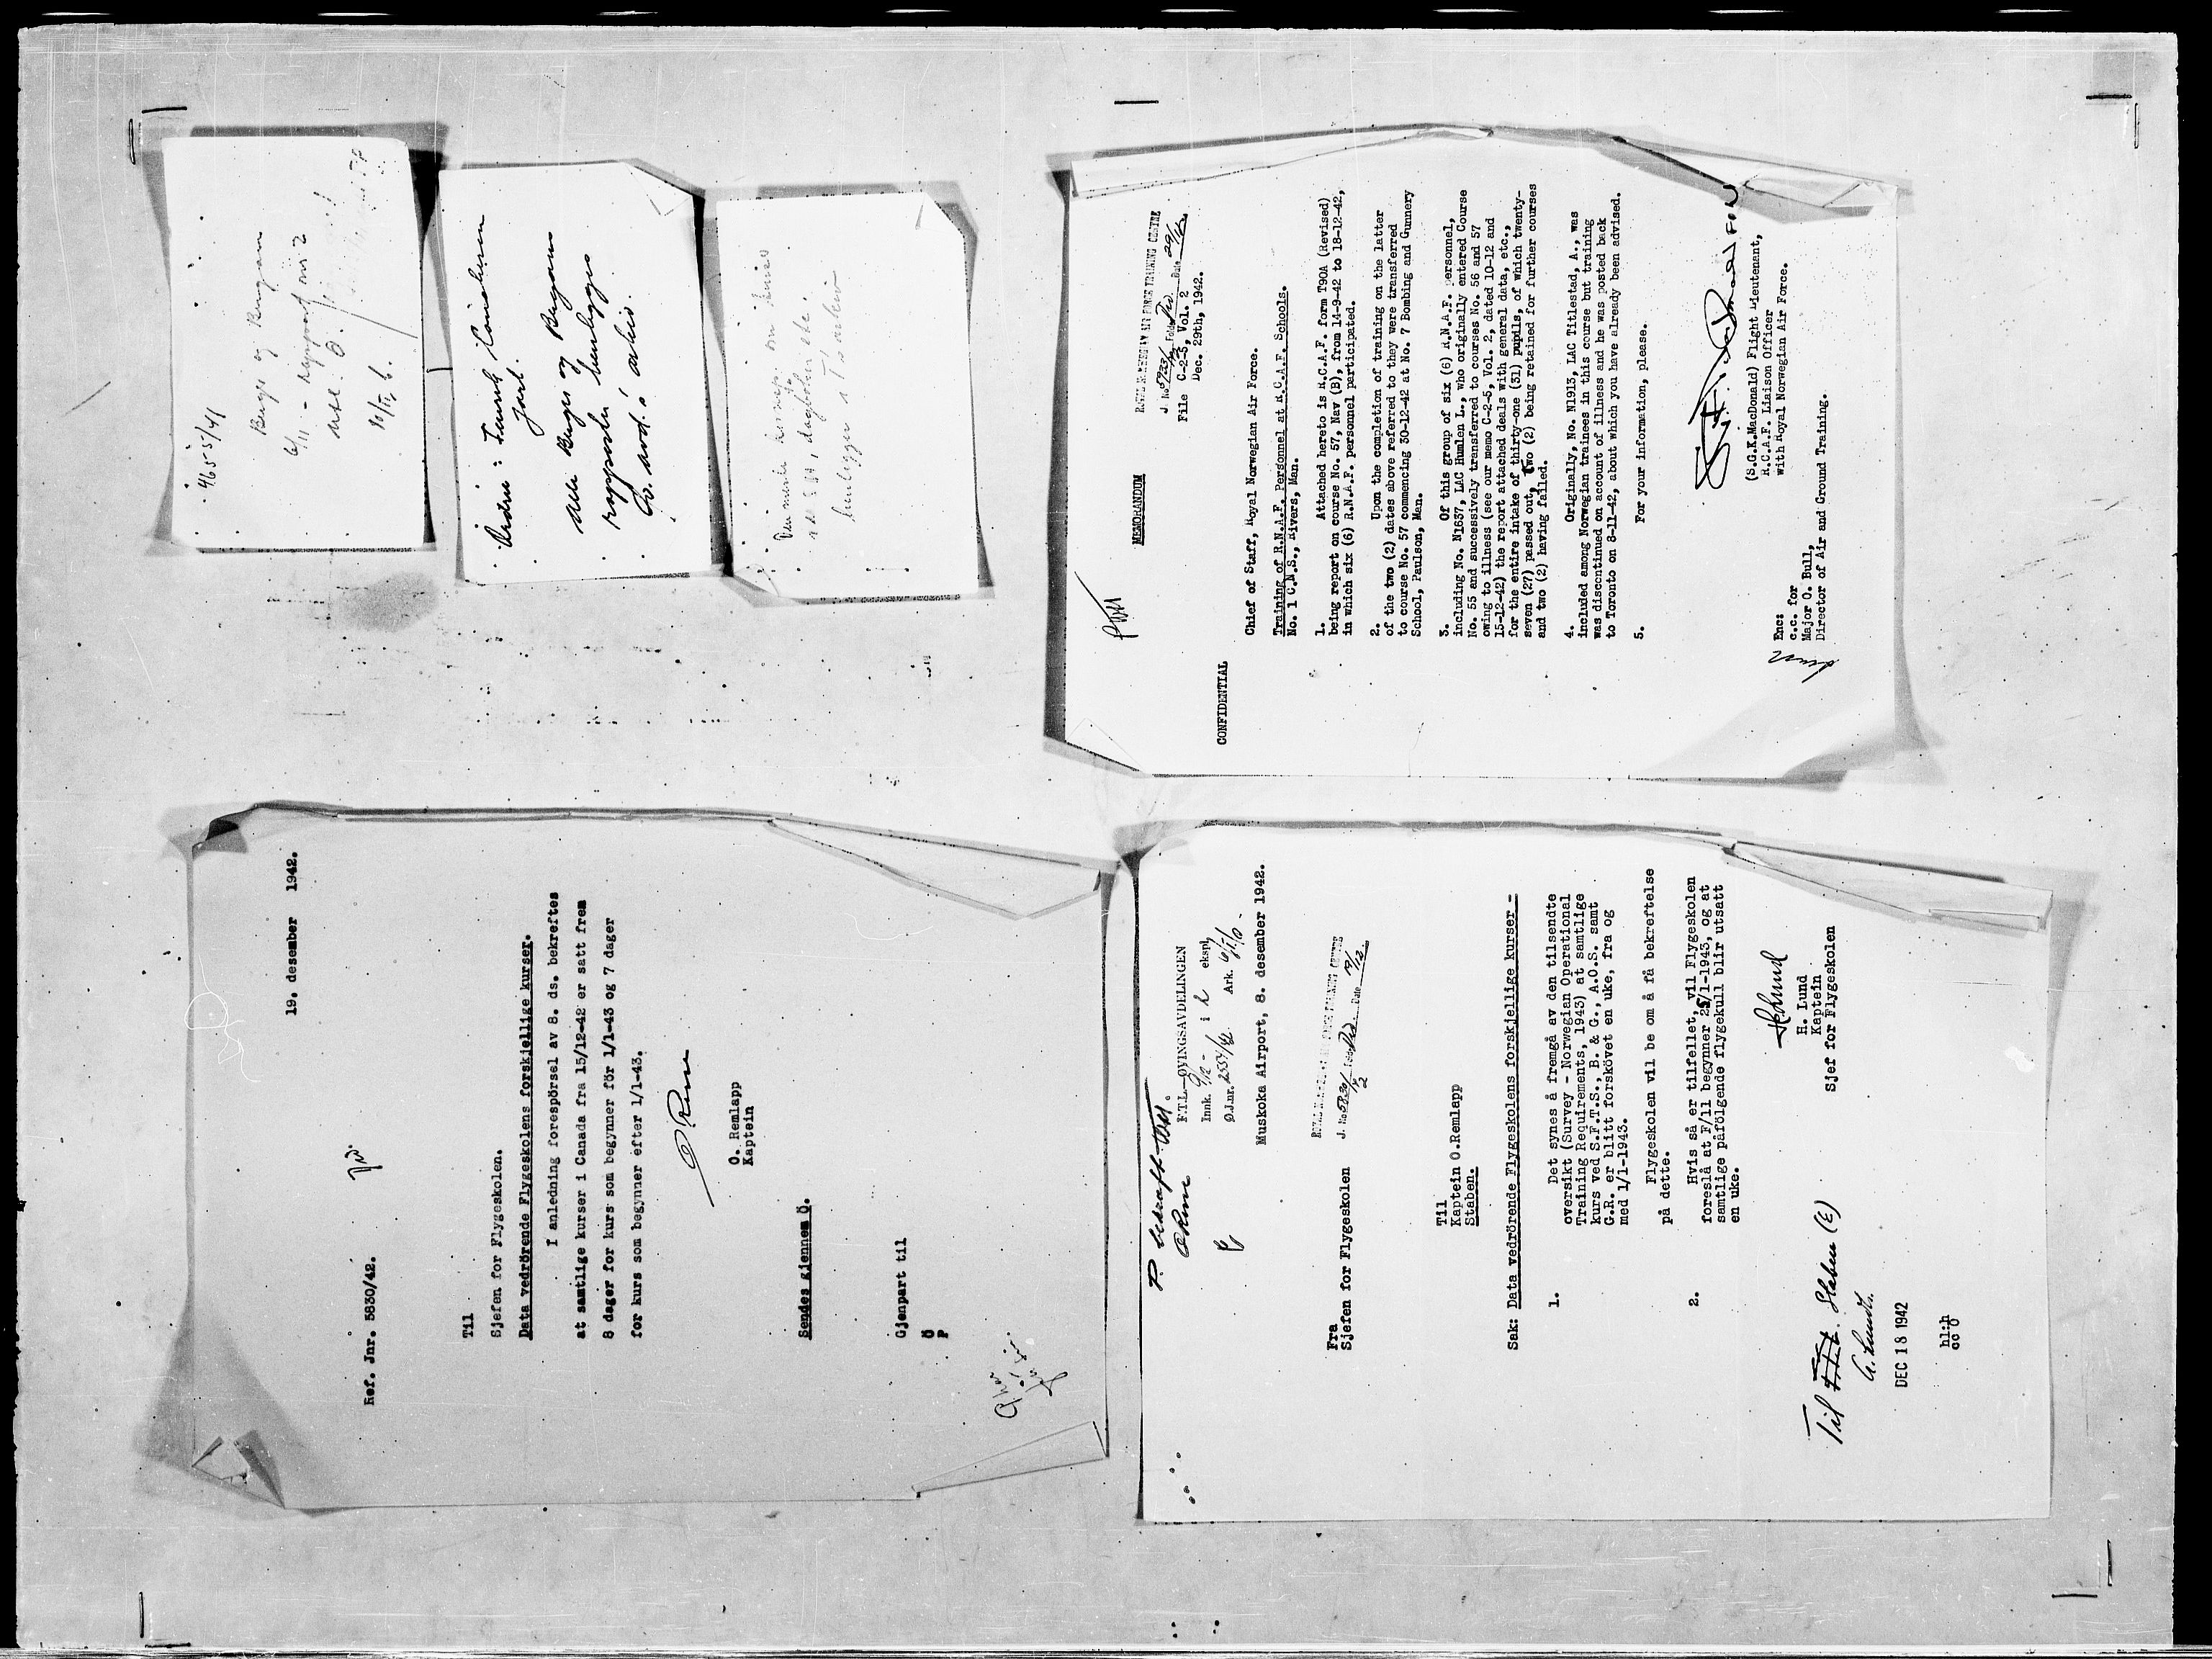 4655/41
Berge og Bergan
6/11 - Rapport nr 2
Ordre:
Alle Berges og Bergans
rapporter henlegges
i arkiv.
Den neste
henlegges i arkiv
19. desember 1942.
Ref. Jnr. 5830/42.
Til
Sjefen for Flygeskolen.
Data vedrörende Flygeskolens forskjellige kurser.
I anledning forespörsel av 8. ds. bekreftes
at samtlige kurser i Canada fra 15/12-42 er satt frem
8 dager for kurs som begynner för 1/1-43 og 7 dager
for kurs som begynner efter 1/1-43.
O. Remlapp
Kaptein
Sendes gjennem Ö.
Gjenpart til
Ö
P
MEMORANDUM
ROYAL NORWEGIAN AIR FORCE TRAINING CENTRE
File C-2-5, Vol. 2
Dec. 29th, 1942.
CONFIDENTIAL
Chief of Staff, Royal Norwegian Air Force.
Training of R.N.A.F. Personnel at R.C.A.F. Schools.
No. 1 C.N.S., Rivers, Man.
1. Attached hereto is R.C.A.F. form T90A (Revised)
being report on course No. 57, Nav (B), from 14-9-42 to 18-12-42,
in which six (6) R.N.A.F. personnel participated.
2. Upon the completion of training on the latter
of the two (2) dates above referred to they were transferred
to course No. 57 commencing 30-12-42 at No. 7 Bombing and Gunnery
School, Paulson, Man.
3. Of this group of six (6) R.N.A.F. personnel,
including No. N1637, LAC Humlen L., who originally entered Course
No. 55 and successively transferred to courses No. 56 and 57
owing to illness (see our memo C-2-5, Vol. 2, dated 10-12 and
15-12-42) the report attached deals with general data, etc.,
for the entire intake of thirty-one (31) pupils, of which twenty-
seven (27) passed out, two (2) being retained for further courses
and two (2) having failed.
4. Originally, No. N1913, LAC Titlestad, A., was
included among Norwegian trainees in this course but training
was discontinued on account of illness and he was posted back
to Toronto on 8-11-42, about which you have already been advised.
5. For your information, please.
(S.G.K.MacDonald) Flight Lieutenant,
R.C.A.F. Liaison Officer
with Royal Norwegian Air Force.
Enc:
c.c. for
Major O. Bull,
Director of Air and Ground Training.
F.T.L.—ØVINGSAVDELINGEN
Innk. 9/12 - i 2 ekspl.
Ø.J.nr. 2554/42 Ark.
Muskoka Airport, 8. desember 1942.
ROYAL NORWEGIAN AIR FORCE TRAINING CENTRE
J. No 5830/42 Date 19/12.
Fra
Sjefen for Flygeskolen
Til
Kaptein O.Remlapp
Staben.
Sak: Data vedrörende Flygeskolens forskjellige kurser -
1. Det synes å fremgå av den tilsendte
oversikt (Survey - Norwegian Operational
Training Requirements, 1943) at samtlige
kurs ved S.F.T.S., B. & G., A.O.S. samt
G.R. er blitt forskövet en uke, fra og
med 1/1-1943.
Flygeskolen vil be om å få bekreftelse
på dette.
2. Hvis så er tilfellet, vil Flygeskolen
foreslå at F/11 begynner 25/1-1943, og at
samtlige påfölgende flygekull blir utsatt
en uke.
HLund
H. Lund
Kaptein
Sjef for Flygeskolen
Til Staben (E)
DEC 18 1942
hl:h
cc Ö